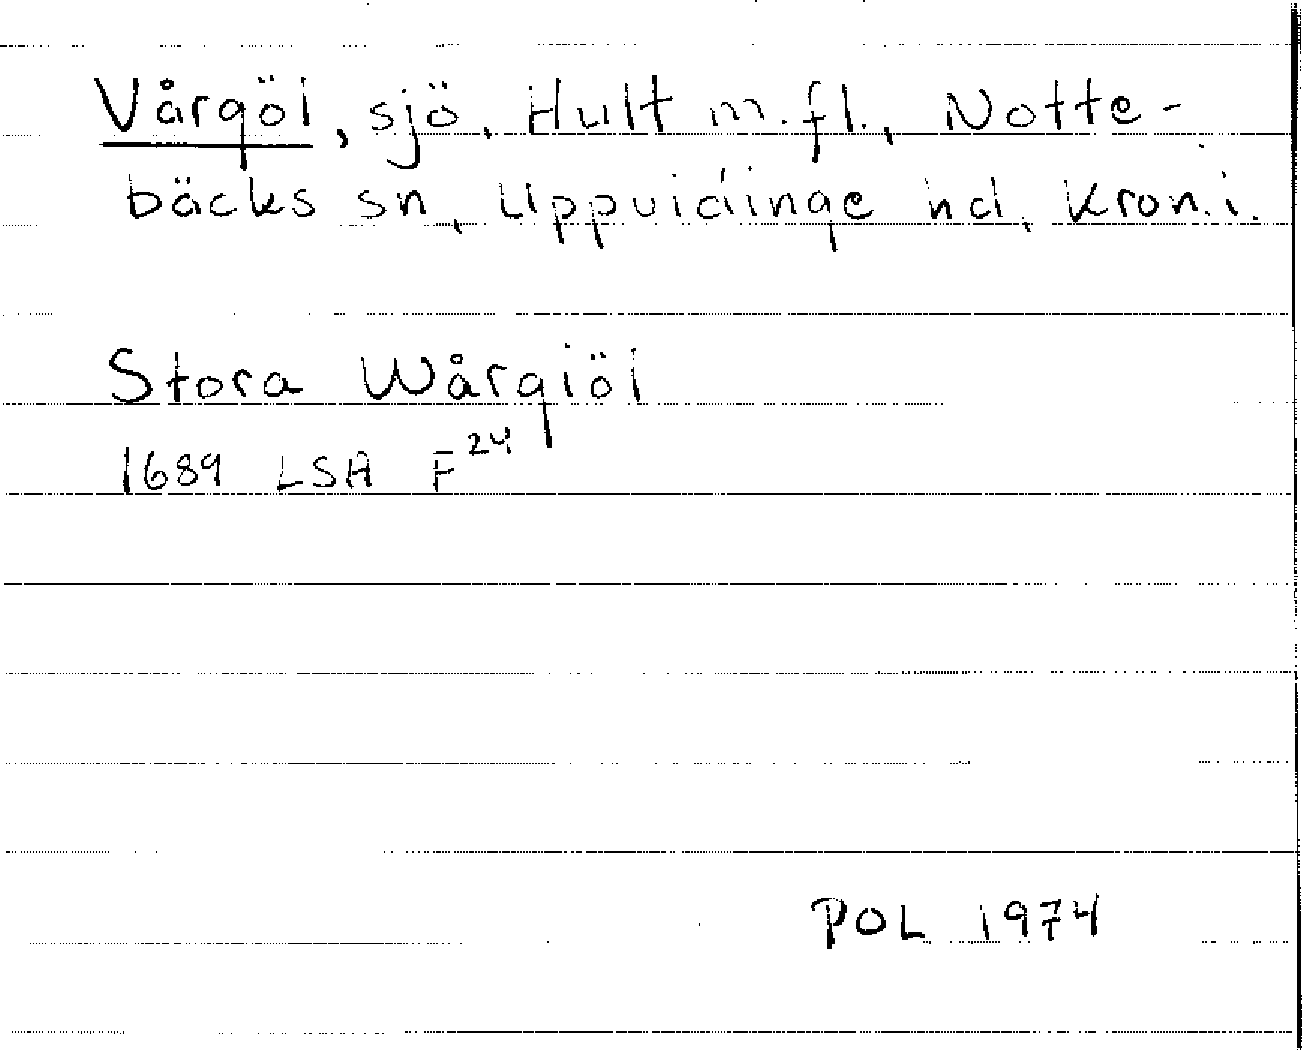 Vårgöl, sjö, Hult m.fl., Notte-
bäcks sn, Uppvidinge hd, Kron.l.
Stora Wårgiöl
1689 LSA F24
POL 1974